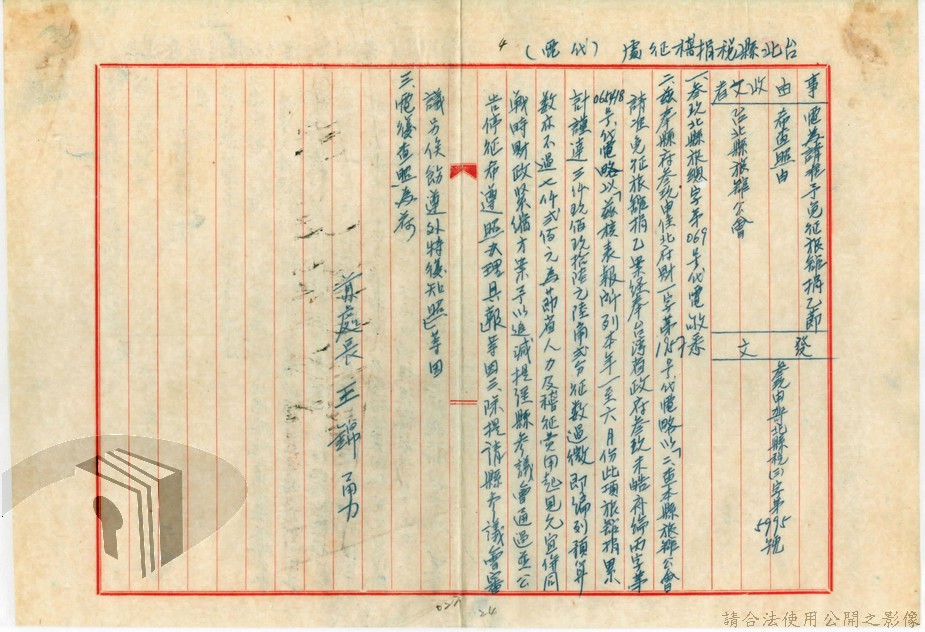 台北縣稅捐稽征處（代電）
事由
電為請准予免征旅雜捐乙節
希查照由
收文者
台北縣旅雜公會
發文
叁玖申 北縣稅(三)字第5995號
一、叁玖北縣旅總字第069號代電敬悉
二、茲奉縣府叁玖申佳北府財一字第1957號代電略以「二、查本縣旅雜公會
請准免征旅雜捐乙案經奉台灣省政府叁玖未皓府綸丙字第
06548號代電略以「茲核表報所列本年一至六月份此項旅雜捐累
計謹達三仟玖佰玖拾陸元陸角貳分征數過微即編列預算
數亦不過七仟貳佰元為節省人力及稽征費用起見允宜併同
戰時財政緊縮方案予以追減提經縣參議會通過並公
告停征希遵照办理具報」等因三、除提請縣參議會審
議另俟飭遵外特復知照」等因
三、電復查照為荷
處長王錦勇
027 24
請合法使用公開之影像